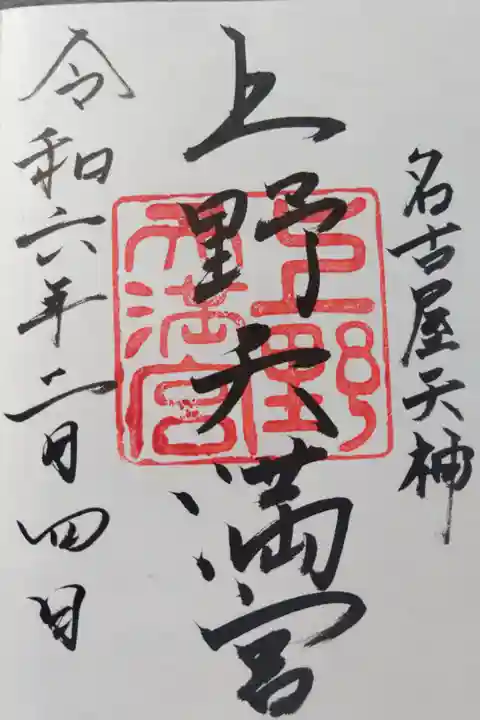 名古屋天神
上野天満宮
上野天満宮
令和六年二月四日